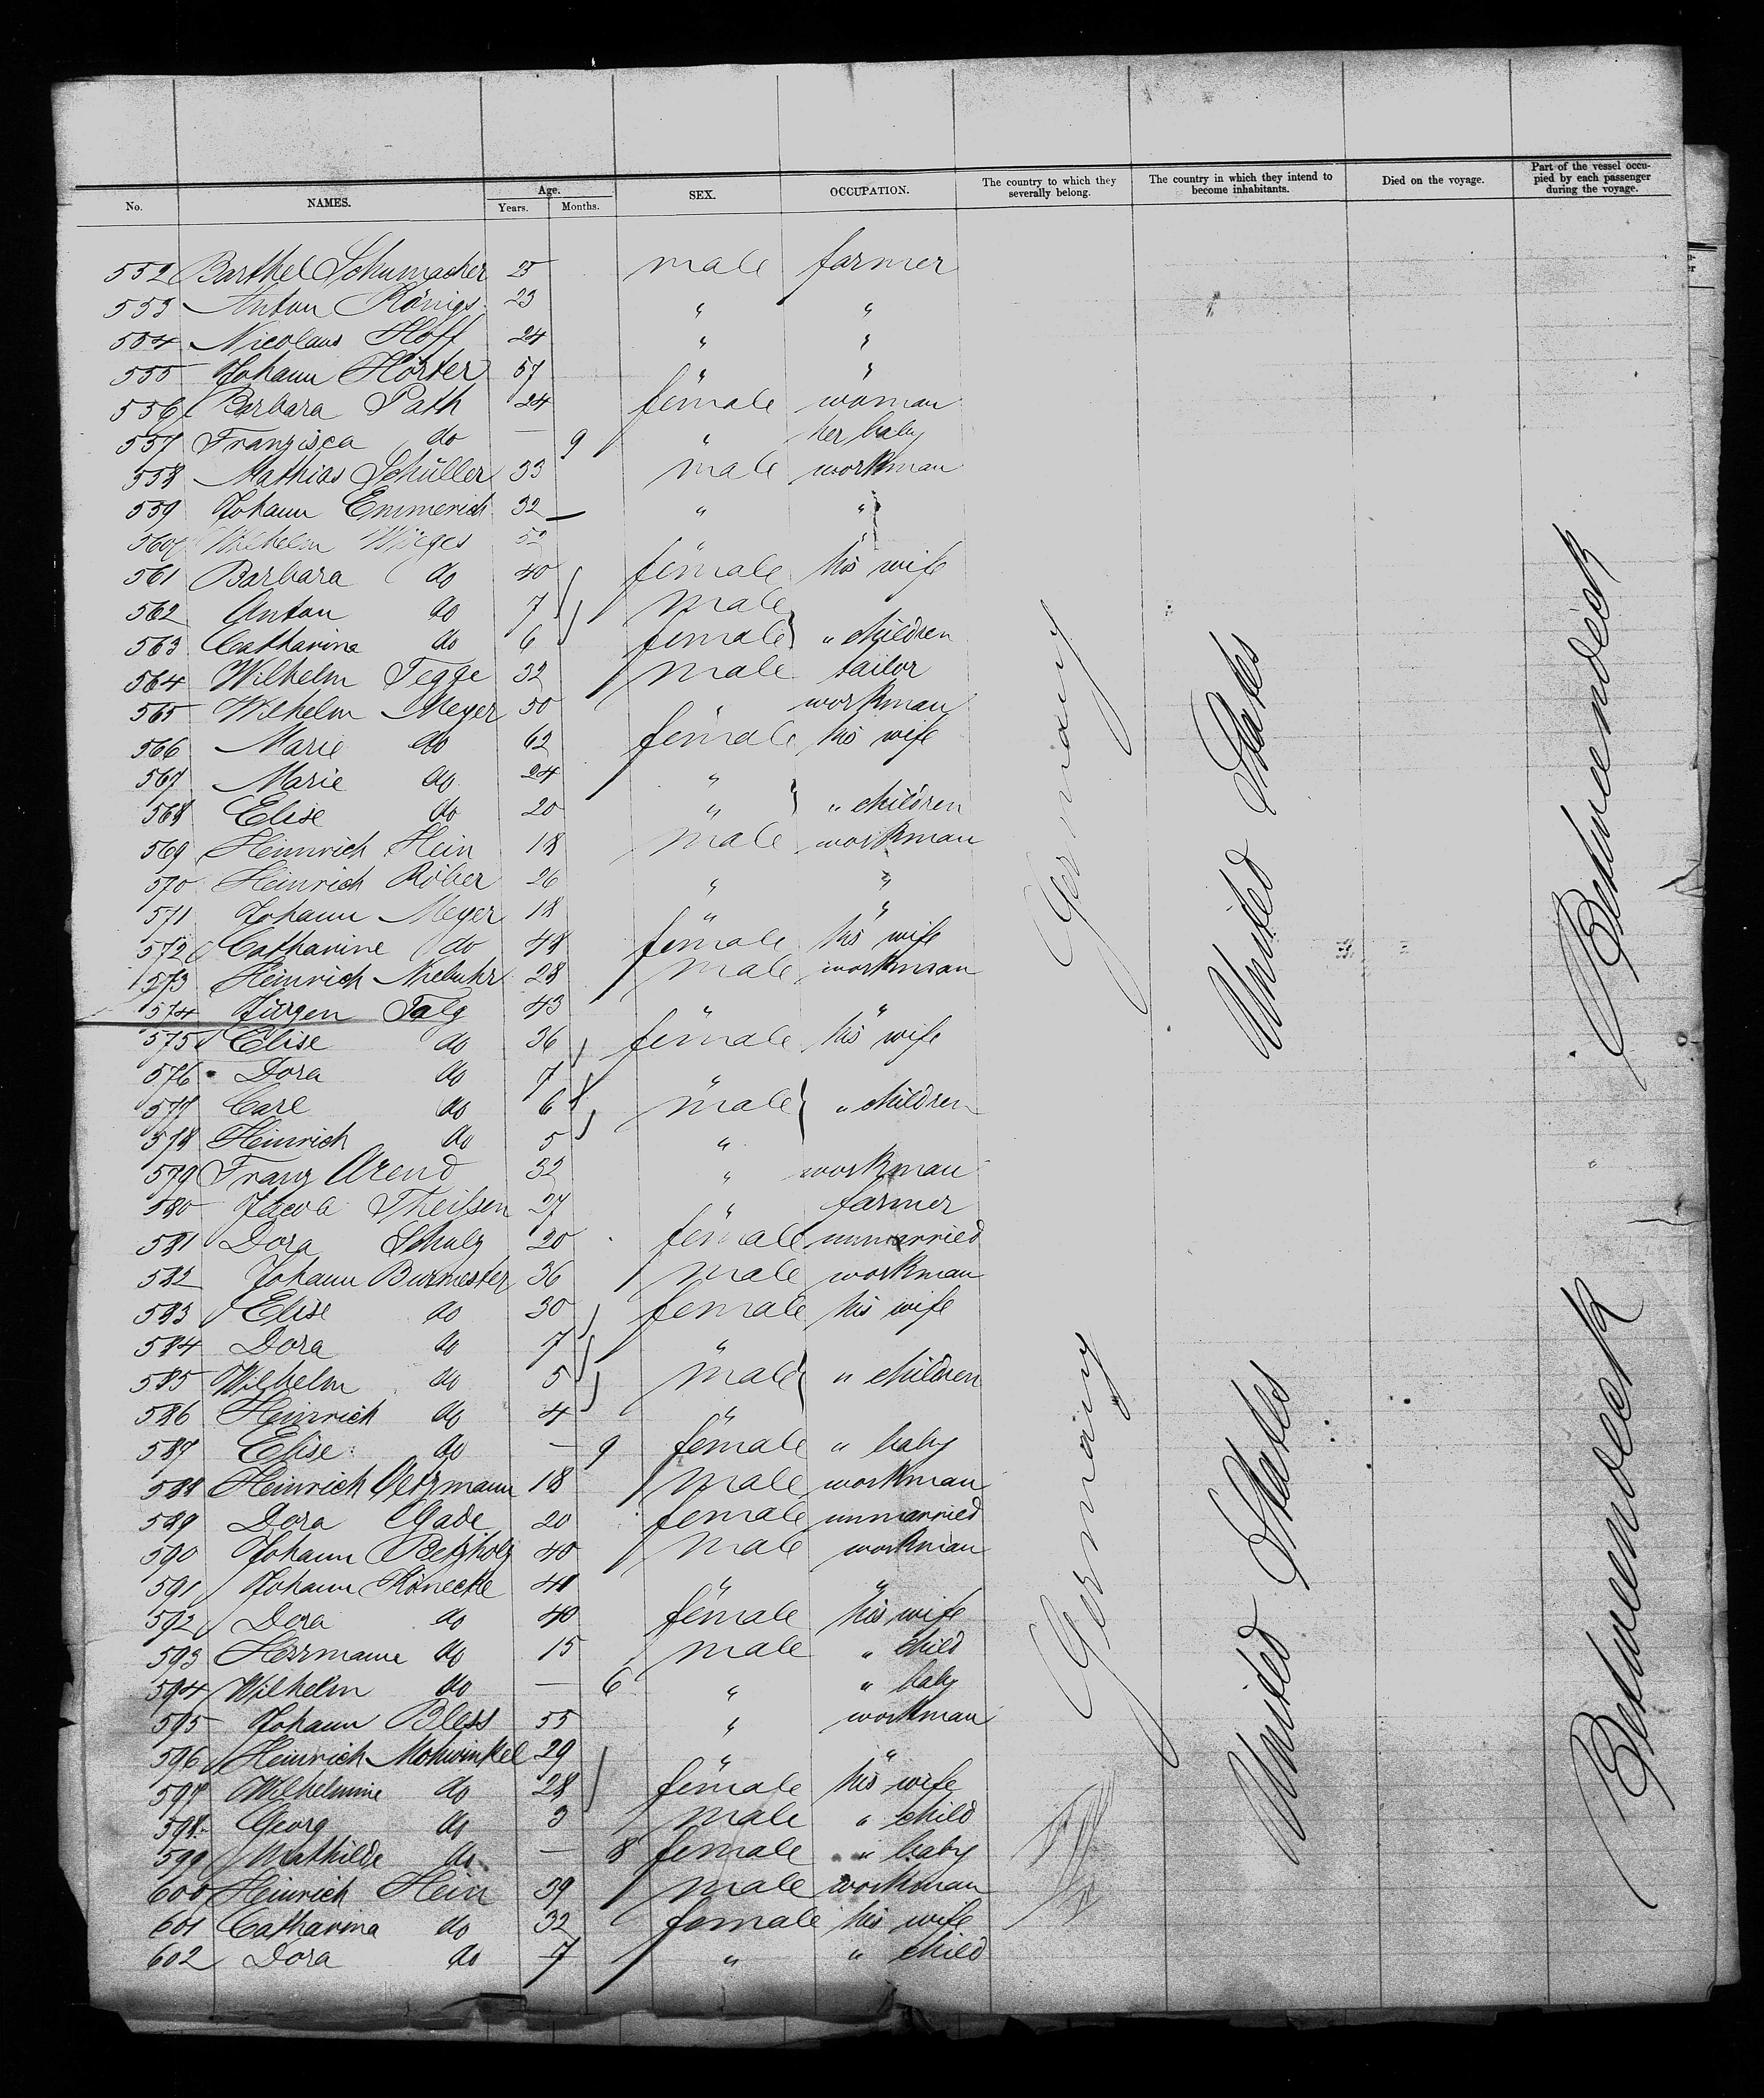 No. NAMES. Age. Years. Months. SEX. OCCUPATION. The country to which they severally belong. The country in which they intend to become inhabitants. Died on the voyage. Part of the vessel occupied by each passenger during the voyage.
552 Barthel Schumacher 25 male farmer
553 Anton Königs 23 " "
554 Nicolaus Hoff 24 " "
555 Johann Hörter 57 " "
556 Barbara Path 24 female woman
557 Franzisca do — 9 " her baby
558 Mathias Schüller 33 male workman
559 Johann Emmerich 32 " "
560 Wilhelm Wirges 52 " "
561 Barbara do 40 female his wife
562 Anton do 7 male
563 Catharina do 6 female " children
564 Wilhelm Tegge 32 male tailor
565 Wilhelm Meyer 50 " workman
566 Marie do 62 female his wife
567 Marie do 24 "
568 Elise do 20 " " children
569 Heinrich Hein 18 male workman
570 Heinrich Röber 26 " "
571 Johann Meyer 18 " "
572 Catharine do 48 female his wife
573 Heinrich Niebuhr 28 male workman
574 Jürgen Falg 43 " "
575 Elise do 36 female his wife
576 Dora do 7 "
577 Carl do 6 male " children
578 Heinrich do 5 "
579 Franz Arend 32 " workman
580 Jacob Theilsen 27 " farmer
581 Dora Schulz 20 female unmarried
582 Johann Burmester 36 male workman
583 Elise do 30 female his wife
584 Dora do 7 "
585 Wilhelm do 5 male " children
586 Heinrich do 4 "
587 Elise do — 9 female " baby
588 Heinrich Oetzmann 18 male workman
589 Dora Gade 20 female unmarried
590 Johann Betzholz 40 male workman
591 Johann Könecke 41 " "
592 Dora do 40 female his wife
593 Herrmann do 15 male " child
594 Wilhelm do — 6 " " baby
595 Johann Bless 55 " workman
596 Heinrich Mohwinkel 29 " "
597 Wilhelmine do 28 female his wife
598 Georg do 3 male " child
599 Mathilde do — 8 female " baby
600 Heinrich Hein 39 male workman
601 Catharina do 32 female his wife
602 Dora do 7 " " child
Germany
United States
Betweendeck
Germany
United States
Betweendeck